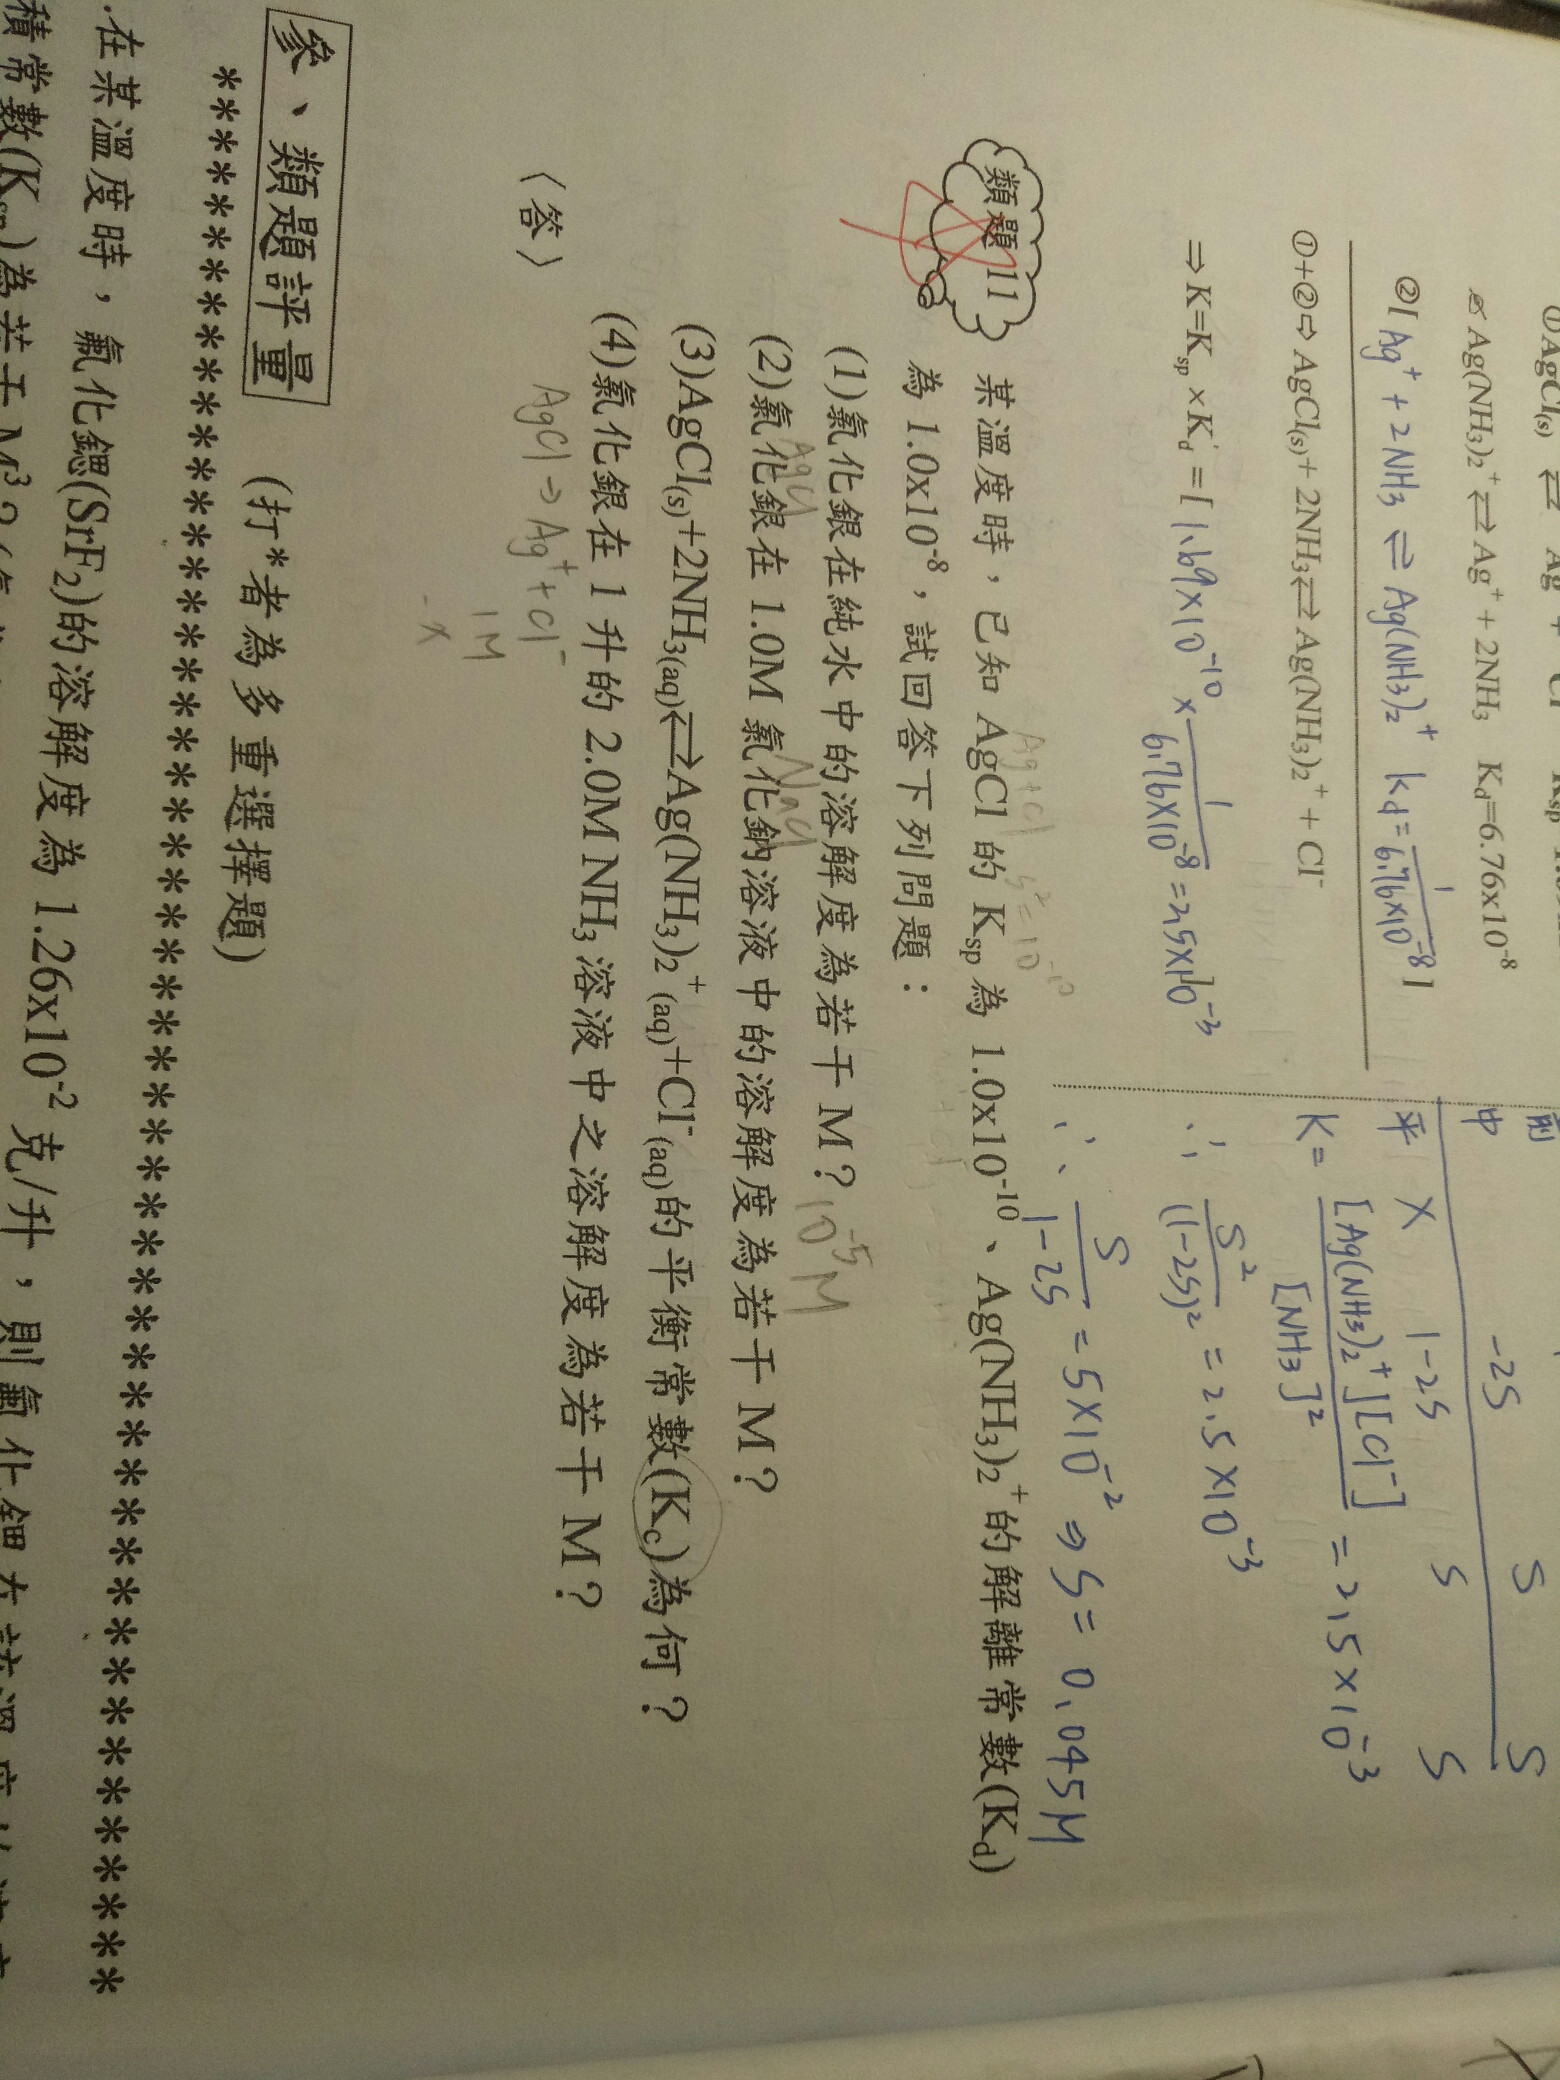 ①AgCl(s) ⇄ Ag⁺ + Cl⁻ Ksp
✍ Ag(NH₃)₂⁺ ⇄ Ag⁺ + 2NH₃ Kd=6.76x10⁻⁸
②[ Ag⁺ + 2NH₃ ⇌ Ag(NH₃)₂⁺ kd = 1/6.76×10⁻⁸ ]
①+②⇨ AgCl(s)+ 2NH₃⇄ Ag(NH₃)₂⁺ + Cl⁻
⇒ K=Ksp ×Kd' = [ 1.69×10⁻¹⁰ × 1/6.76×10⁻⁸ = 2.5×10⁻³
前
中 -2S S S
平 X 1-2S S S
K = [Ag(NH₃)₂⁺][Cl⁻] / [NH₃]² = 2.5×10⁻³
∴ S²/(1-2S)² = 2.5×10⁻³
∴ S/1-2S = 5×10⁻² ⇒ S = 0.045M
類題 11 某溫度時，已知 AgCl 的 Ksp 為 1.0x10⁻¹⁰、Ag(NH₃)₂⁺的解離常數(Kd)
Ag+Cl S² = 10⁻¹⁰
為 1.0x10⁻⁸，試回答下列問題：
(1)氯化銀在純水中的溶解度為若干 M？ 10⁻⁵M
AgCl NaCl
(2)氯化銀在 1.0M 氯化鈉溶液中的溶解度為若干 M？
(3)AgCl(s)+2NH₃(aq)⇄Ag(NH₃)₂⁺(aq)+Cl⁻(aq)的平衡常數(Kc)為何？
(4)氯化銀在 1 升的 2.0M NH₃ 溶液中之溶解度為若干 M？
〈答〉
AgCl → Ag⁺ + Cl⁻
1M
-x
參、類題評量 (打*者為多重選擇題)
************************************
.在某溫度時，氟化鍶(SrF₂)的溶解度為 1.26x10⁻² 克/升，則氟化鍶在該溫度的溶度
積常數(Ksp)為若干 M³？